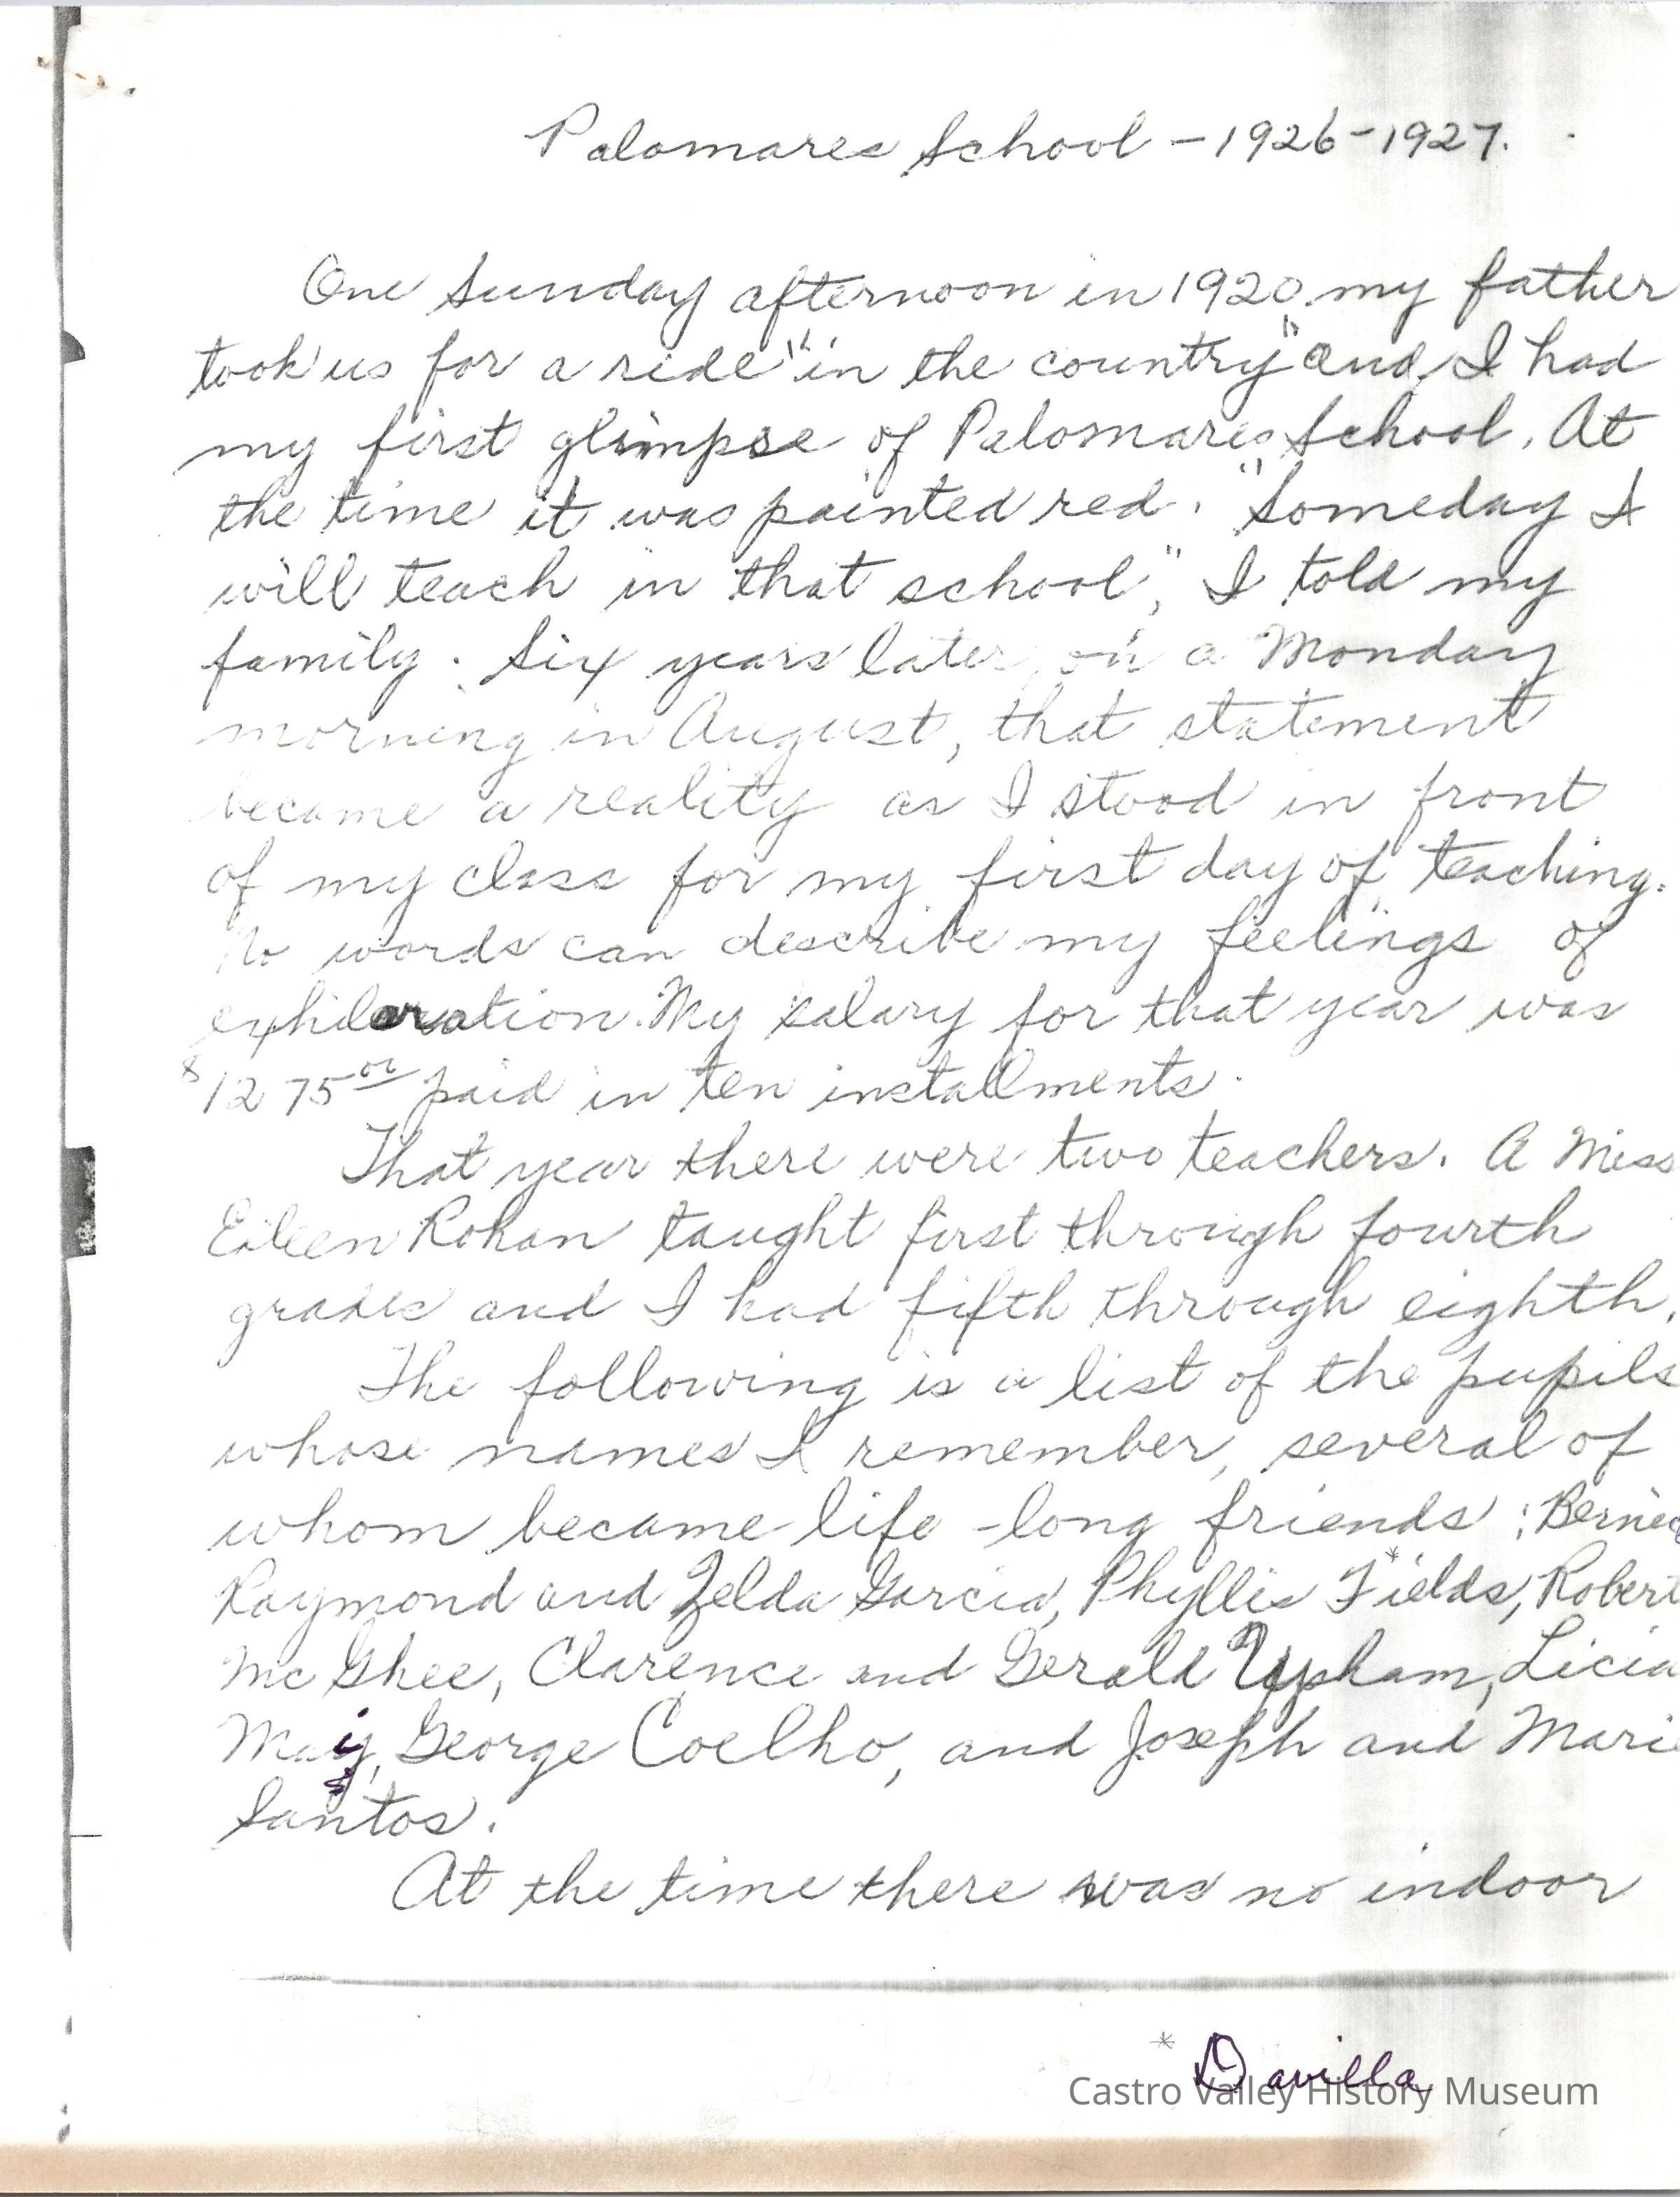 Palomares School - 1926-1927.
One Sunday afternoon in 1920 my father
took us for a ride "in the country" and I had
my first glimpse of Palomares School. At
the time it was painted red. "Someday I
will teach in that school", I told my
family. Six years later on a Monday
morning in August, that statement
became a reality as I stood in front
of my class for my first day of teaching.
No words can describe my feelings of
exhilaration. My salary for that year was
$1275 00 paid in ten installments.
That year there were two teachers. A Miss
Eileen Rohan taught first through fourth
grades and I had fifth through eighth.
The following is a list of the pupils
whose names I remember, several of
whom became life-long friends: Bernice
Raymond and Zelda Garcia, Phyllis Fields,* Robert
McGhee, Clarence and Gerald Upham, Licia
George Coelho, and Joseph and Marie
Santos.
At the time there was no indoor
* Davilla
Castro Valley History Museum